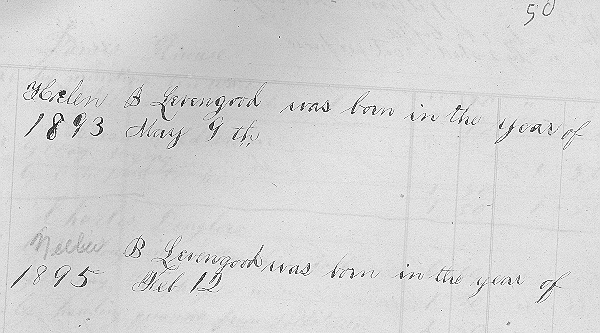 50
Helen B Levengood was born in the year of
1893 May 9th
Nellie B Levengood was born in the year of
1895 Feb 12